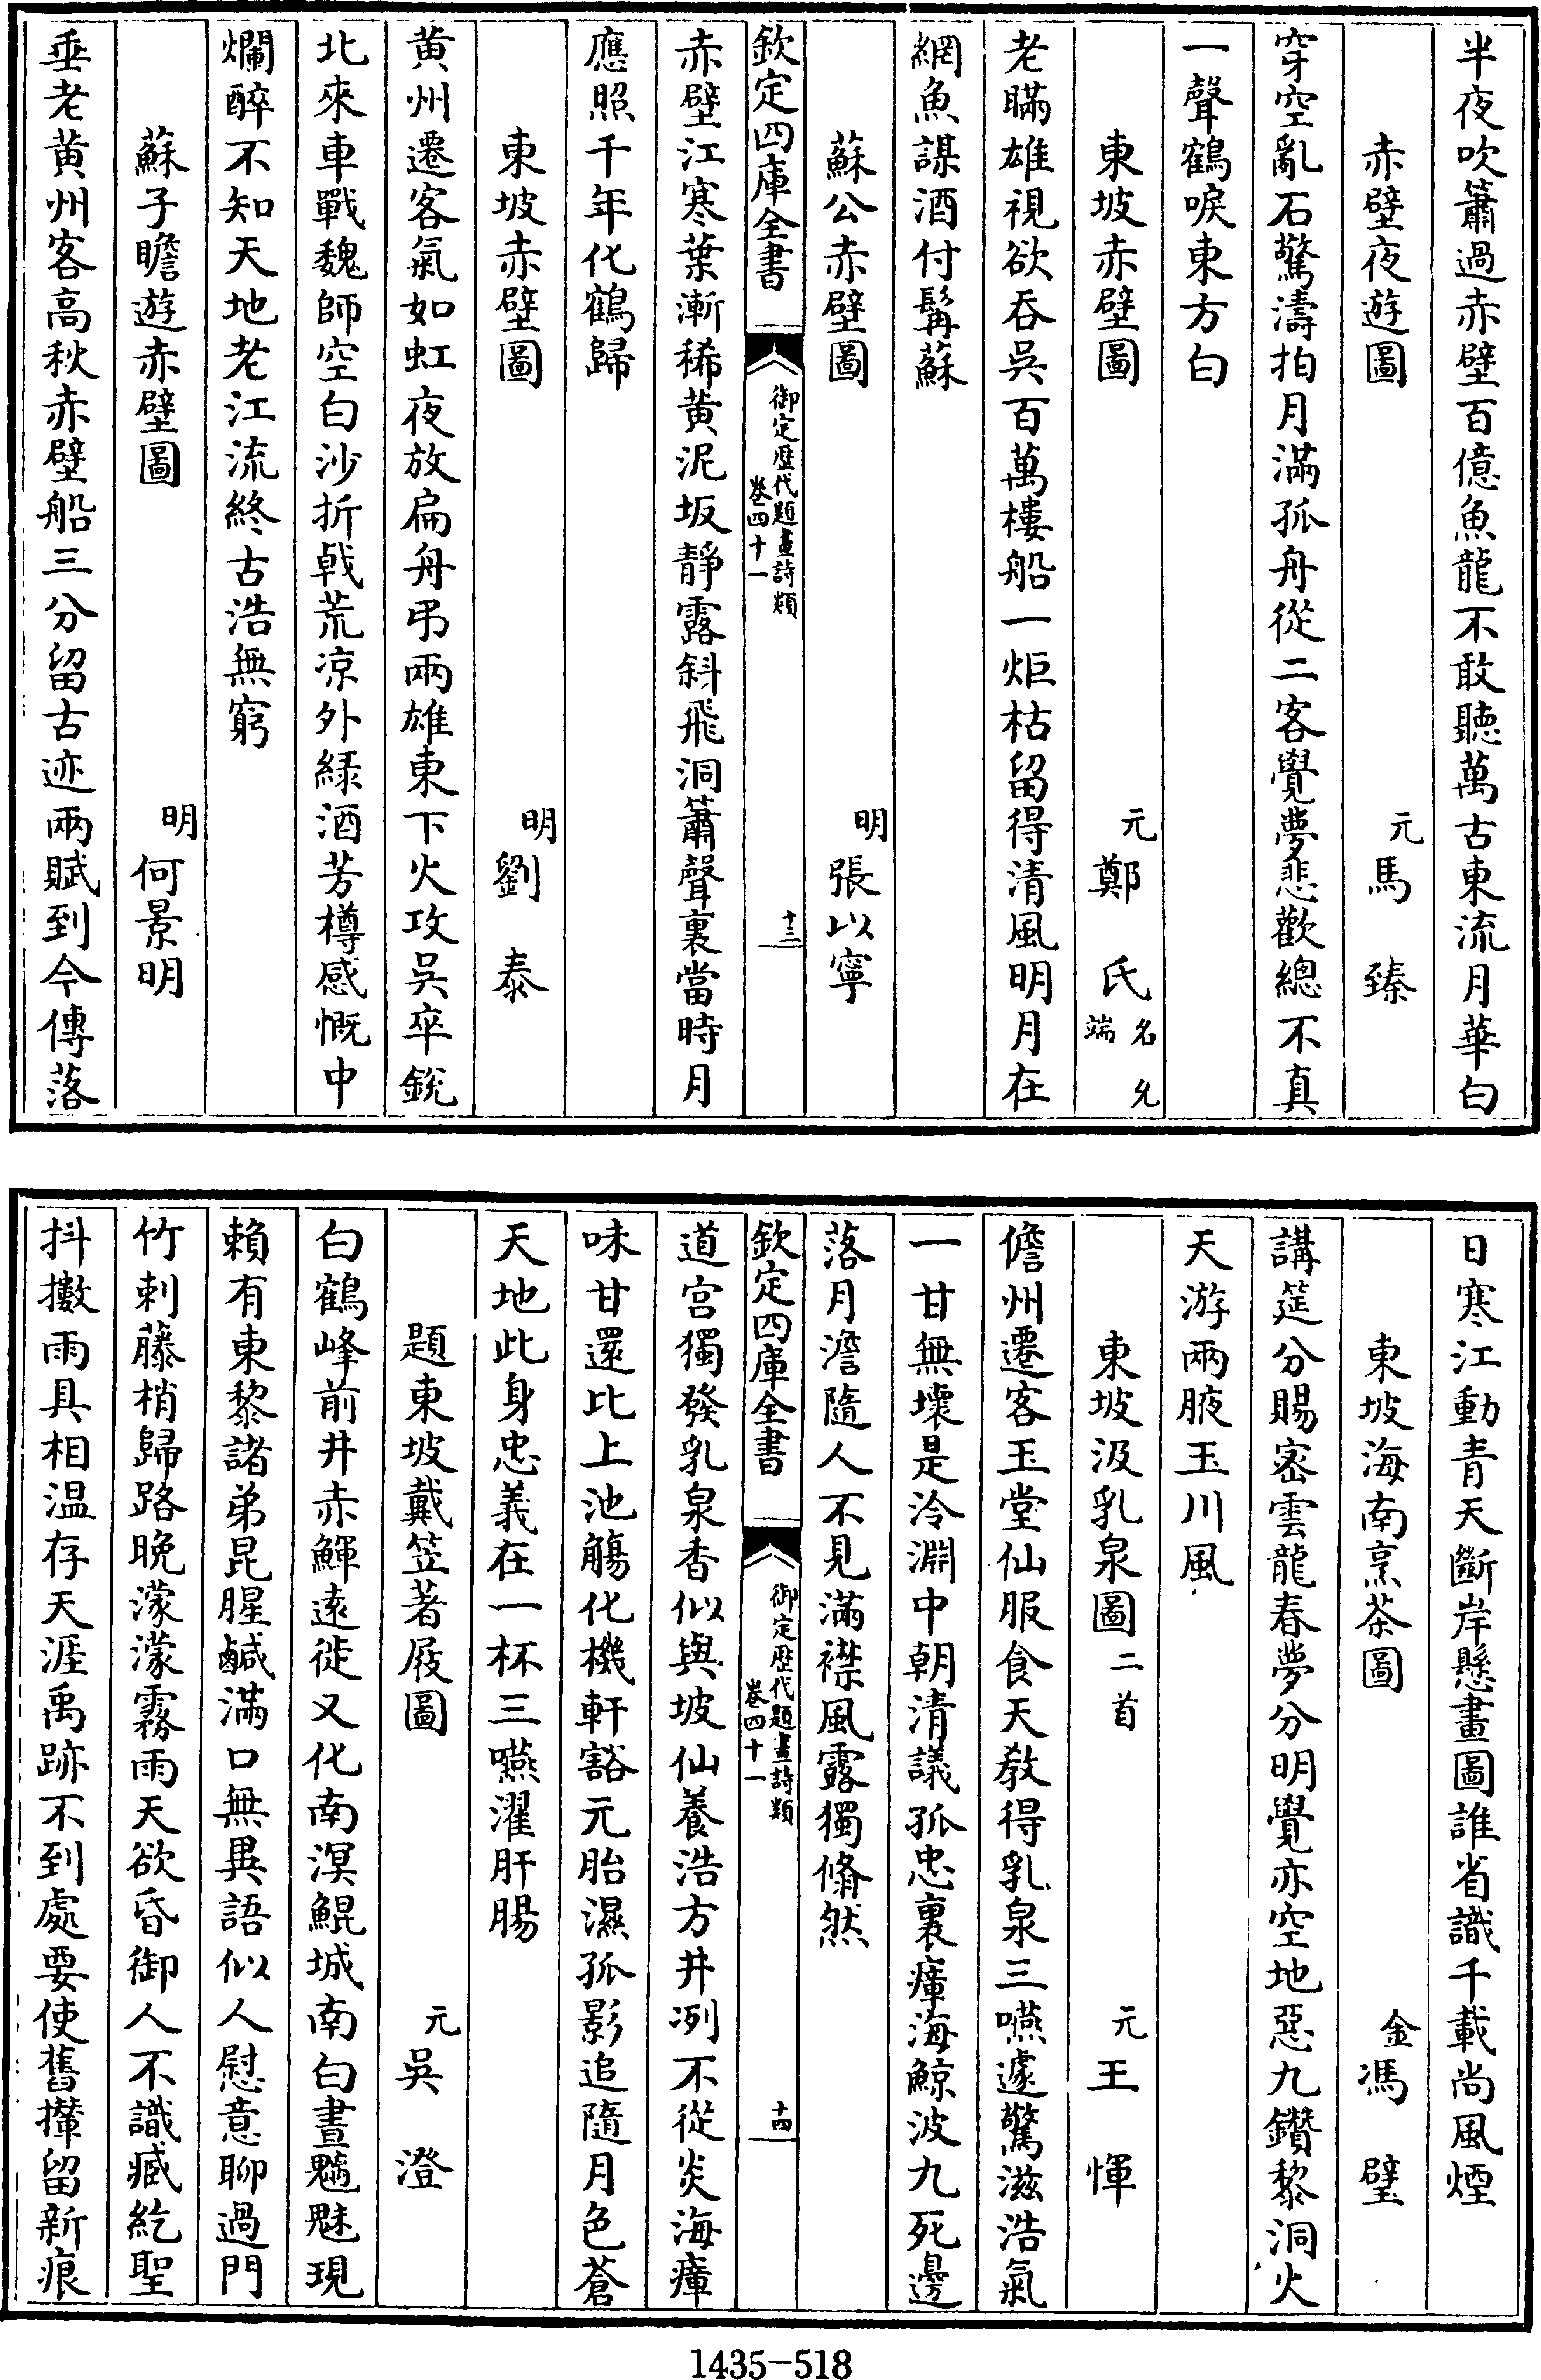 半夜吹簫過赤壁百億魚龍不敢聽萬古東流月華白
赤壁夜遊圖　元馬　臻
穿空亂石驚濤拍月滿孤舟從二客覺夢悲歡總不真
一聲鶴唳東方白
東坡赤壁圖　元鄭　氏名允端
老瞞雄視欲吞吳百萬樓船一炬枯留得清風明月在
網魚謀酒付髯蘇
蘇公赤壁圖　明張以寧
欽定四庫全書　御定歴代題畫詩類卷四十一　十三
赤壁江寒葉漸稀黃泥坂靜露斜飛洞簫聲裏當時月
應照千年化鶴歸
東坡赤壁圖　明劉　泰
黃州遷客氣如虹夜放扁舟弔兩雄東下火攻吳卒銳
北來車戰魏師空白沙折戟荒涼外緑酒芳樽感慨中
爛醉不知天地老江流終古浩無窮
蘇子瞻遊赤壁圖　明何景明
垂老黃州客高秋赤壁船三分留古迹兩賦到今傳落
日寒江動青天斷岸懸畫圖誰省識千載尚風煙
東坡海南烹茶圖　金馮　璧
講筵分賜密雲龍春夢分明覺亦空地惡九鑽黎洞火
天游兩腋玉川風
東坡汲乳泉圖二首　元王　惲
儋州遷客玉堂仙服食天教得乳泉三嚥遽驚滋浩氣
一甘無壞是泠淵中朝清議孤忠裏瘴海鯨波九死邊
落月澹隨人不見滿襟風露獨翛然
欽定四庫全書　御定歴代題畫詩類卷四十一　十四
道宮獨發乳泉香似與坡仙養浩方井冽不從炎海瘴
味甘還比上池觴化機軒豁元胎濕孤影追隨月色蒼
天地此身忠義在一杯三嚥濯肝腸
題東坡戴笠著屐圖　元吳　澄
白鶴峰前井赤鯶遠徙又化南溟鯤城南白晝魑魅現
賴有東黎諸弟昆腥鹹滿口無異語似人慰意聊過門
竹刺藤梢歸路晚濛濛霧雨天欲昏御人不識臧紇聖
抖擻雨具相溫存天涯禹跡不到處要使舊攆留新痕
1435-518